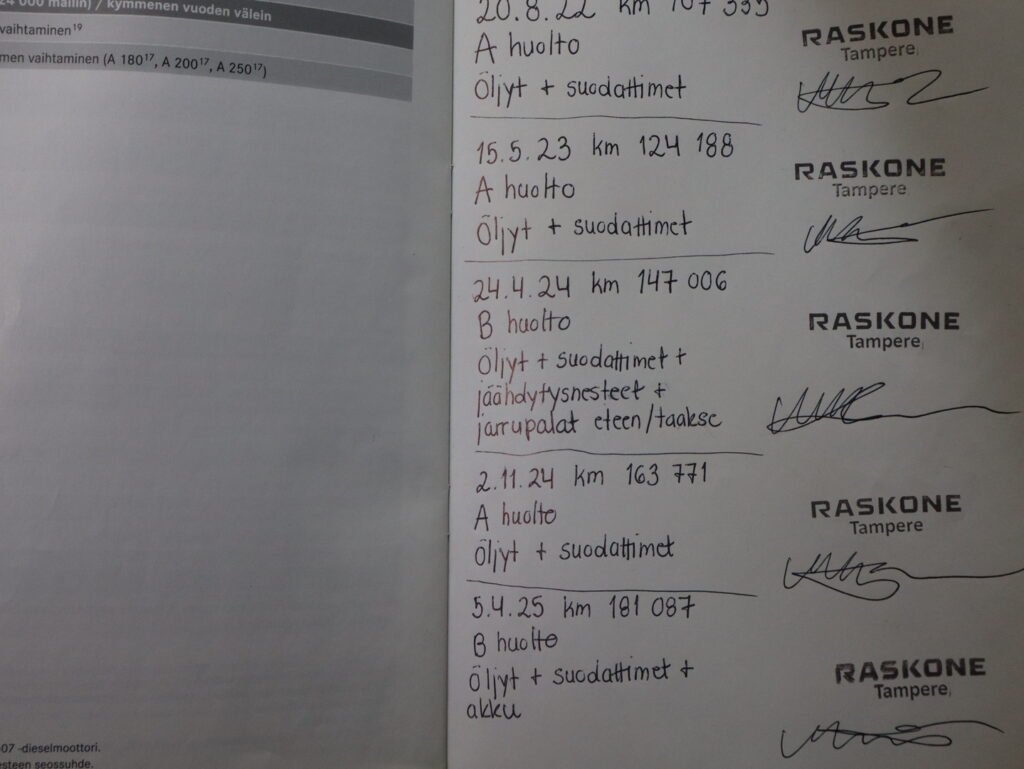 24 000 mailiin) / kymmenen vuoden välein
vaihtaminen¹⁹
men vaihtaminen (A 180¹⁷, A 200¹⁷, A 250¹⁷)
07 -dieselmoottori.
esteen seossuhde.
20.8.22 km 107 339
A huolto
Öljyt + suodattimet
RASKONE
Tampere
15.5.23 km 124 188
A huolto
Öljyt + suodattimet
RASKONE
Tampere
24.4.24 km 147 006
B huolto
Öljyt + suodattimet +
jäähdytysnesteet +
jarrupalat eteen/taakse
RASKONE
Tampere
2.11.24 km 163 771
A huolto
Öljyt + suodattimet
RASKONE
Tampere
5.4.25 km 181 087
B huolto
Öljyt + suodattimet +
akku
RASKONE
Tampere